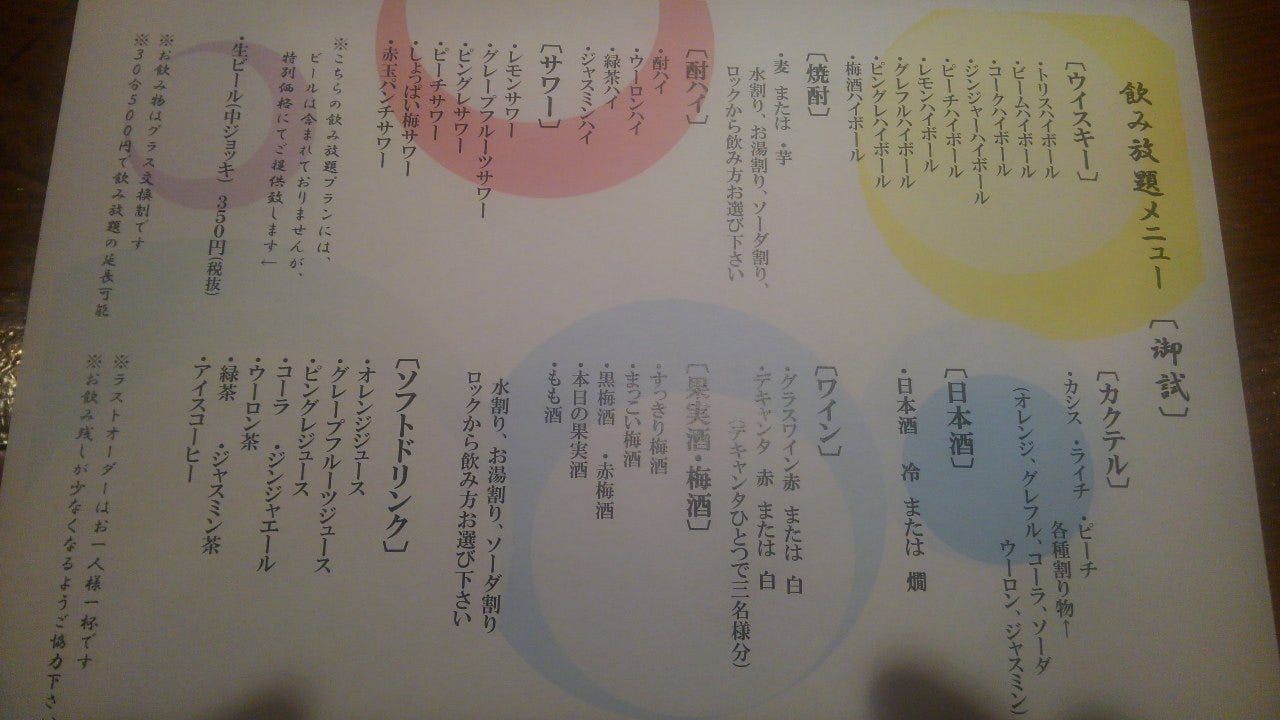 飲み放題メニュー [御試]
[ウイスキー]
・トリスハイボール
・ビームハイボール
・コークハイボール
・ジンジャーハイボール
・ピーチハイボール
・レモンハイボール
・グレフルハイボール
・ピングレハイボール
・梅酒ハイボール
[焼酎]
・麦 または ・芋
水割り、お湯割り、ソーダ割り、
ロックから飲み方お選び下さい
[酎ハイ]
・酎ハイ
・ウーロンハイ
・緑茶ハイ
・ジャスミンハイ
[サワー]
・レモンサワー
・グレープフルーツサワー
・ピングレサワー
・ピーチサワー
・しょっぱい梅サワー
・赤玉パンチサワー
※こちらの飲み放題プランには、
ビールは含まれておりませんが、
特別価格にてご提供致します↓
・生ビール(中ジョッキ) 350円(税抜)
※お飲み物はグラス交換制です
※30分500円で飲み放題の延長可能
[カクテル]
・カシス ・ライチ ・ピーチ
各種割り物↑
(オレンジ、グレフル、コーラ、ソーダ
ウーロン、ジャスミン)
[日本酒]
・日本酒 冷 または 燗
[ワイン]
・グラスワイン赤 または 白
・デキャンタ 赤 または 白
(デキャンタひとつで三名様分)
[果実酒・梅酒]
・すっきり梅酒
・まっこい梅酒
・黒梅酒 ・赤梅酒
・本日の果実酒
・もも酒
水割り、お湯割り、ソーダ割り
ロックから飲み方お選び下さい
[ソフトドリンク]
・オレンジジュース
・グレープフルーツジュース
・ピングレジュース
・コーラ ・ジンジャエール
・ウーロン茶
・緑茶 ・ジャスミン茶
・アイスコーヒー
※ラストオーダーはお一人様一杯です
※お飲み残しが少なくなるようご協力下さ